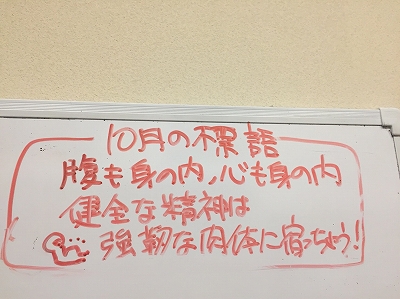 10月の標語
腹も身の内、心も身の内
健全な精神は
強靭な肉体に宿っちゃう!